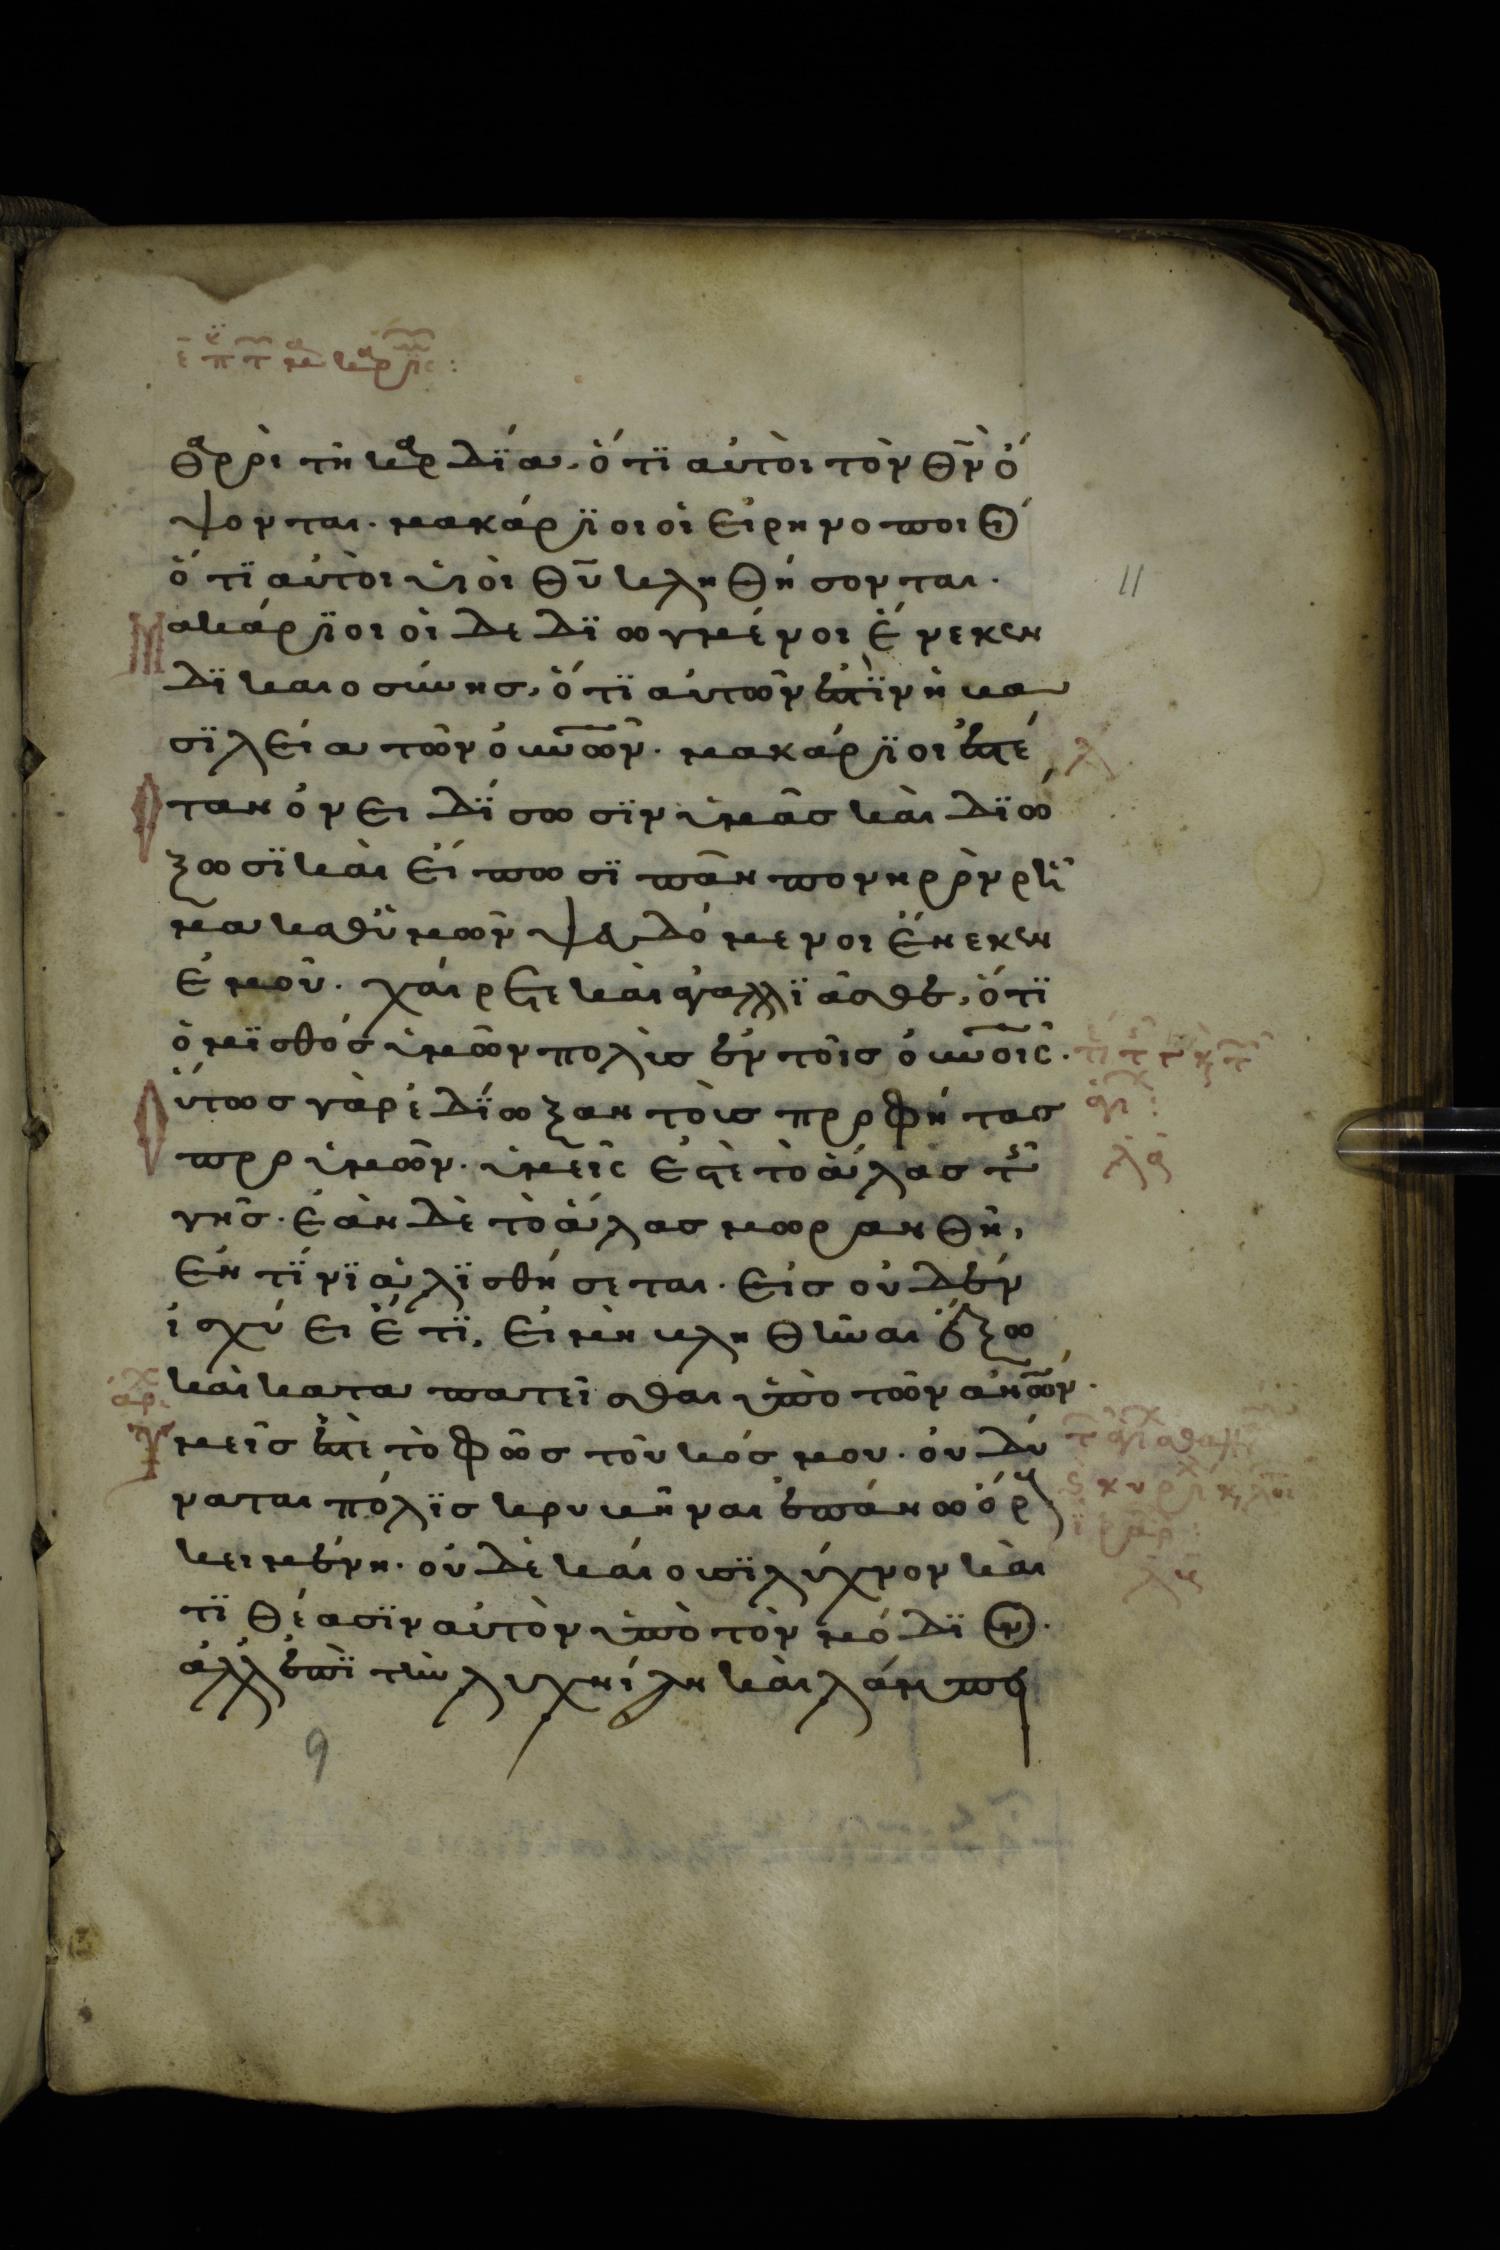 θαρροὶ τῆ καρδία· ὅτι αὐτοὶ τὸν θν ὄ
ψονται. μακάριοι οἱ εἰρηνοποιοί
ὅτι αὐτοὶ υἱοὶ θυ κληθήσονται.
Μακάριοι οἱ δεδιωγμένοι ἕνεκεν
δικαιοσύνης, ὅτι αὐτῶν ἐστιν ἡ βα
σιλεία τῶν οὐνῶν. μακάριοι ἐστέ
ὅταν ὀνειδίσωσιν ὑμᾶς καὶ διώ
ξωσι καὶ εἴπωσι πᾶν πονηρὸν ρῆ
μα καθ' ὑμῶν ψευδόμενοι ἕνεκεν
ἐμοῦ. χαίρετε καὶ ἀγαλλιᾶσθε, ὅτι
ὁ μισθός ὑμῶν πολὺς ἐν τοῖς οὐνοῖς.
Οὕτως γὰρ ἐδίωξαν τοὺς προφήτας
προ ὑμῶν. ὑμεῖς ἐστὲ τὸ ἅλας τῆς
γῆς. ἐὰν δὲ τὸ ἅλας μωρανθῆ,
ἐν τίνι ἁλισθήσεται. εἰς οὐδὲν
ἰσχύει ἔτι, εἰ μὴ βληθῆναι ἔξω
καὶ καταπατεῖσθαι ὑπὸ τῶν ἀνῶν.
Ὑμεῖς ἐστε τὸ φῶς τοῦ κόσμου. οὐ δύ
ναται πόλις κρυβῆναι ἐπάνω ὄρους
κειμένη. οὐδὲ καίουσι λύχνον καὶ
τιθέασιν αὐτὸν ὑπὸ τὸν μόδιον.
ἀλλ' ἐπὶ τὴν λυχνίαν καὶ λάμπει
11
9